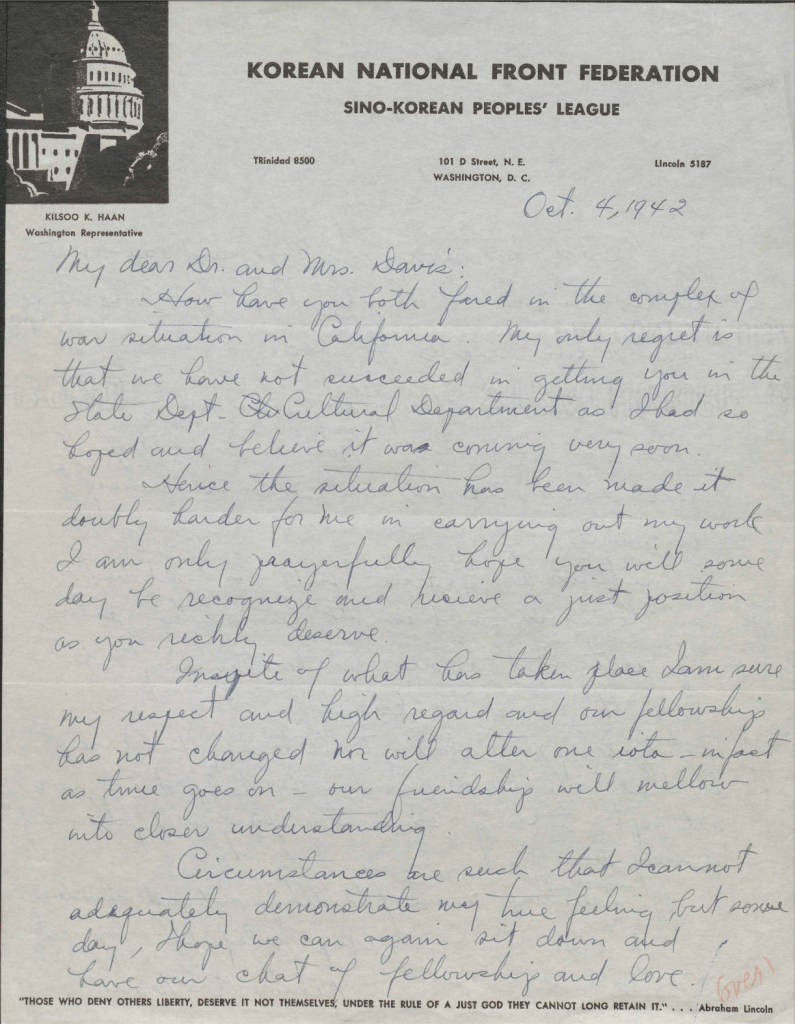 KOREAN NATIONAL FRONT FEDERATION
SINO-KOREAN PEOPLES' LEAGUE
TRinidad 8500
101 D Street, N. E.
WASHINGTON, D. C.
LIncoln 5187
KILSOO K. HAAN
Washington Representative
Oct. 4, 1942
My dear Dr. and Mrs. Davis:
How have you both fared in the complex of
war situation in California. My only regret is
that we have not succeeded in getting you in the
State Dept- Cultural Department as I had so
hoped and believe it was coming very soon.
Hence the situation has been made it
doubly harder for me in carrying out my work
I am only prayerfully hope you will some
day be recognize and recieve a just position
as you richly deserve.
Inspite of what has taken place I am sure
my respect and high regard and our fellowship
has not changed nor will alter one iota - infact
as time goes on - our friendship will mellow
into closer understanding.
Circumstances are such that I cannot
adequately demonstrate my true feeling, but some
day, I hope we can again sit down and
have our chat of fellowship and love.
(over)
"THOSE WHO DENY OTHERS LIBERTY, DESERVE IT NOT THEMSELVES, UNDER THE RULE OF A JUST GOD THEY CANNOT LONG RETAIN IT." . . . Abraham Lincoln